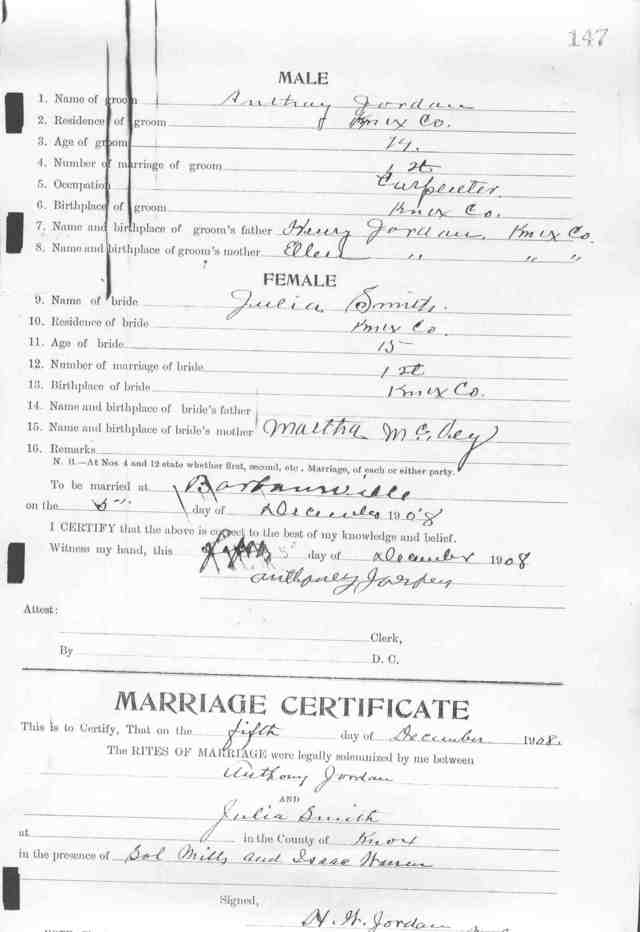 147
MALE
1. Name of groom Anthony Jordan
2. Residence of groom Knox Co.
3. Age of groom
4. Number of marriage of groom 1st
5. Occupation Carpenter.
6. Birthplace of groom Knox Co.
7. Name and birthplace of groom's father Henry Jordan, Knox Co.
8. Name and birthplace of groom's mother Ellen " " "
FEMALE
9. Name of bride Julia Smith.
10. Residence of bride Knox Co.
11. Age of bride 15
12. Number of marriage of bride 1st
13. Birthplace of bride Knox Co.
14. Name and birthplace of bride's father
15. Name and birthplace of bride's mother Martha
16. Remarks
N. B.—At Nos 4 and 12 state whether first, second, etc. Marriage, of each or either party.
To be married at Barbourville
on the 5" day of December 1908
I CERTIFY that the above is correct to the best of my knowledge and belief.
Witness my hand, this day of December 1908
Attest:
Clerk,
By D. C.
MARRIAGE CERTIFICATE
This is to Certify, That on the fifth day of December 1908.
The RITES OF MARRIAGE were legally solemnized by me between
Anthony Jordan
AND
Julia Smith
at in the County of Knox
in the presence of Sol Mills and Isaac
Signed,
H. W. Jordan